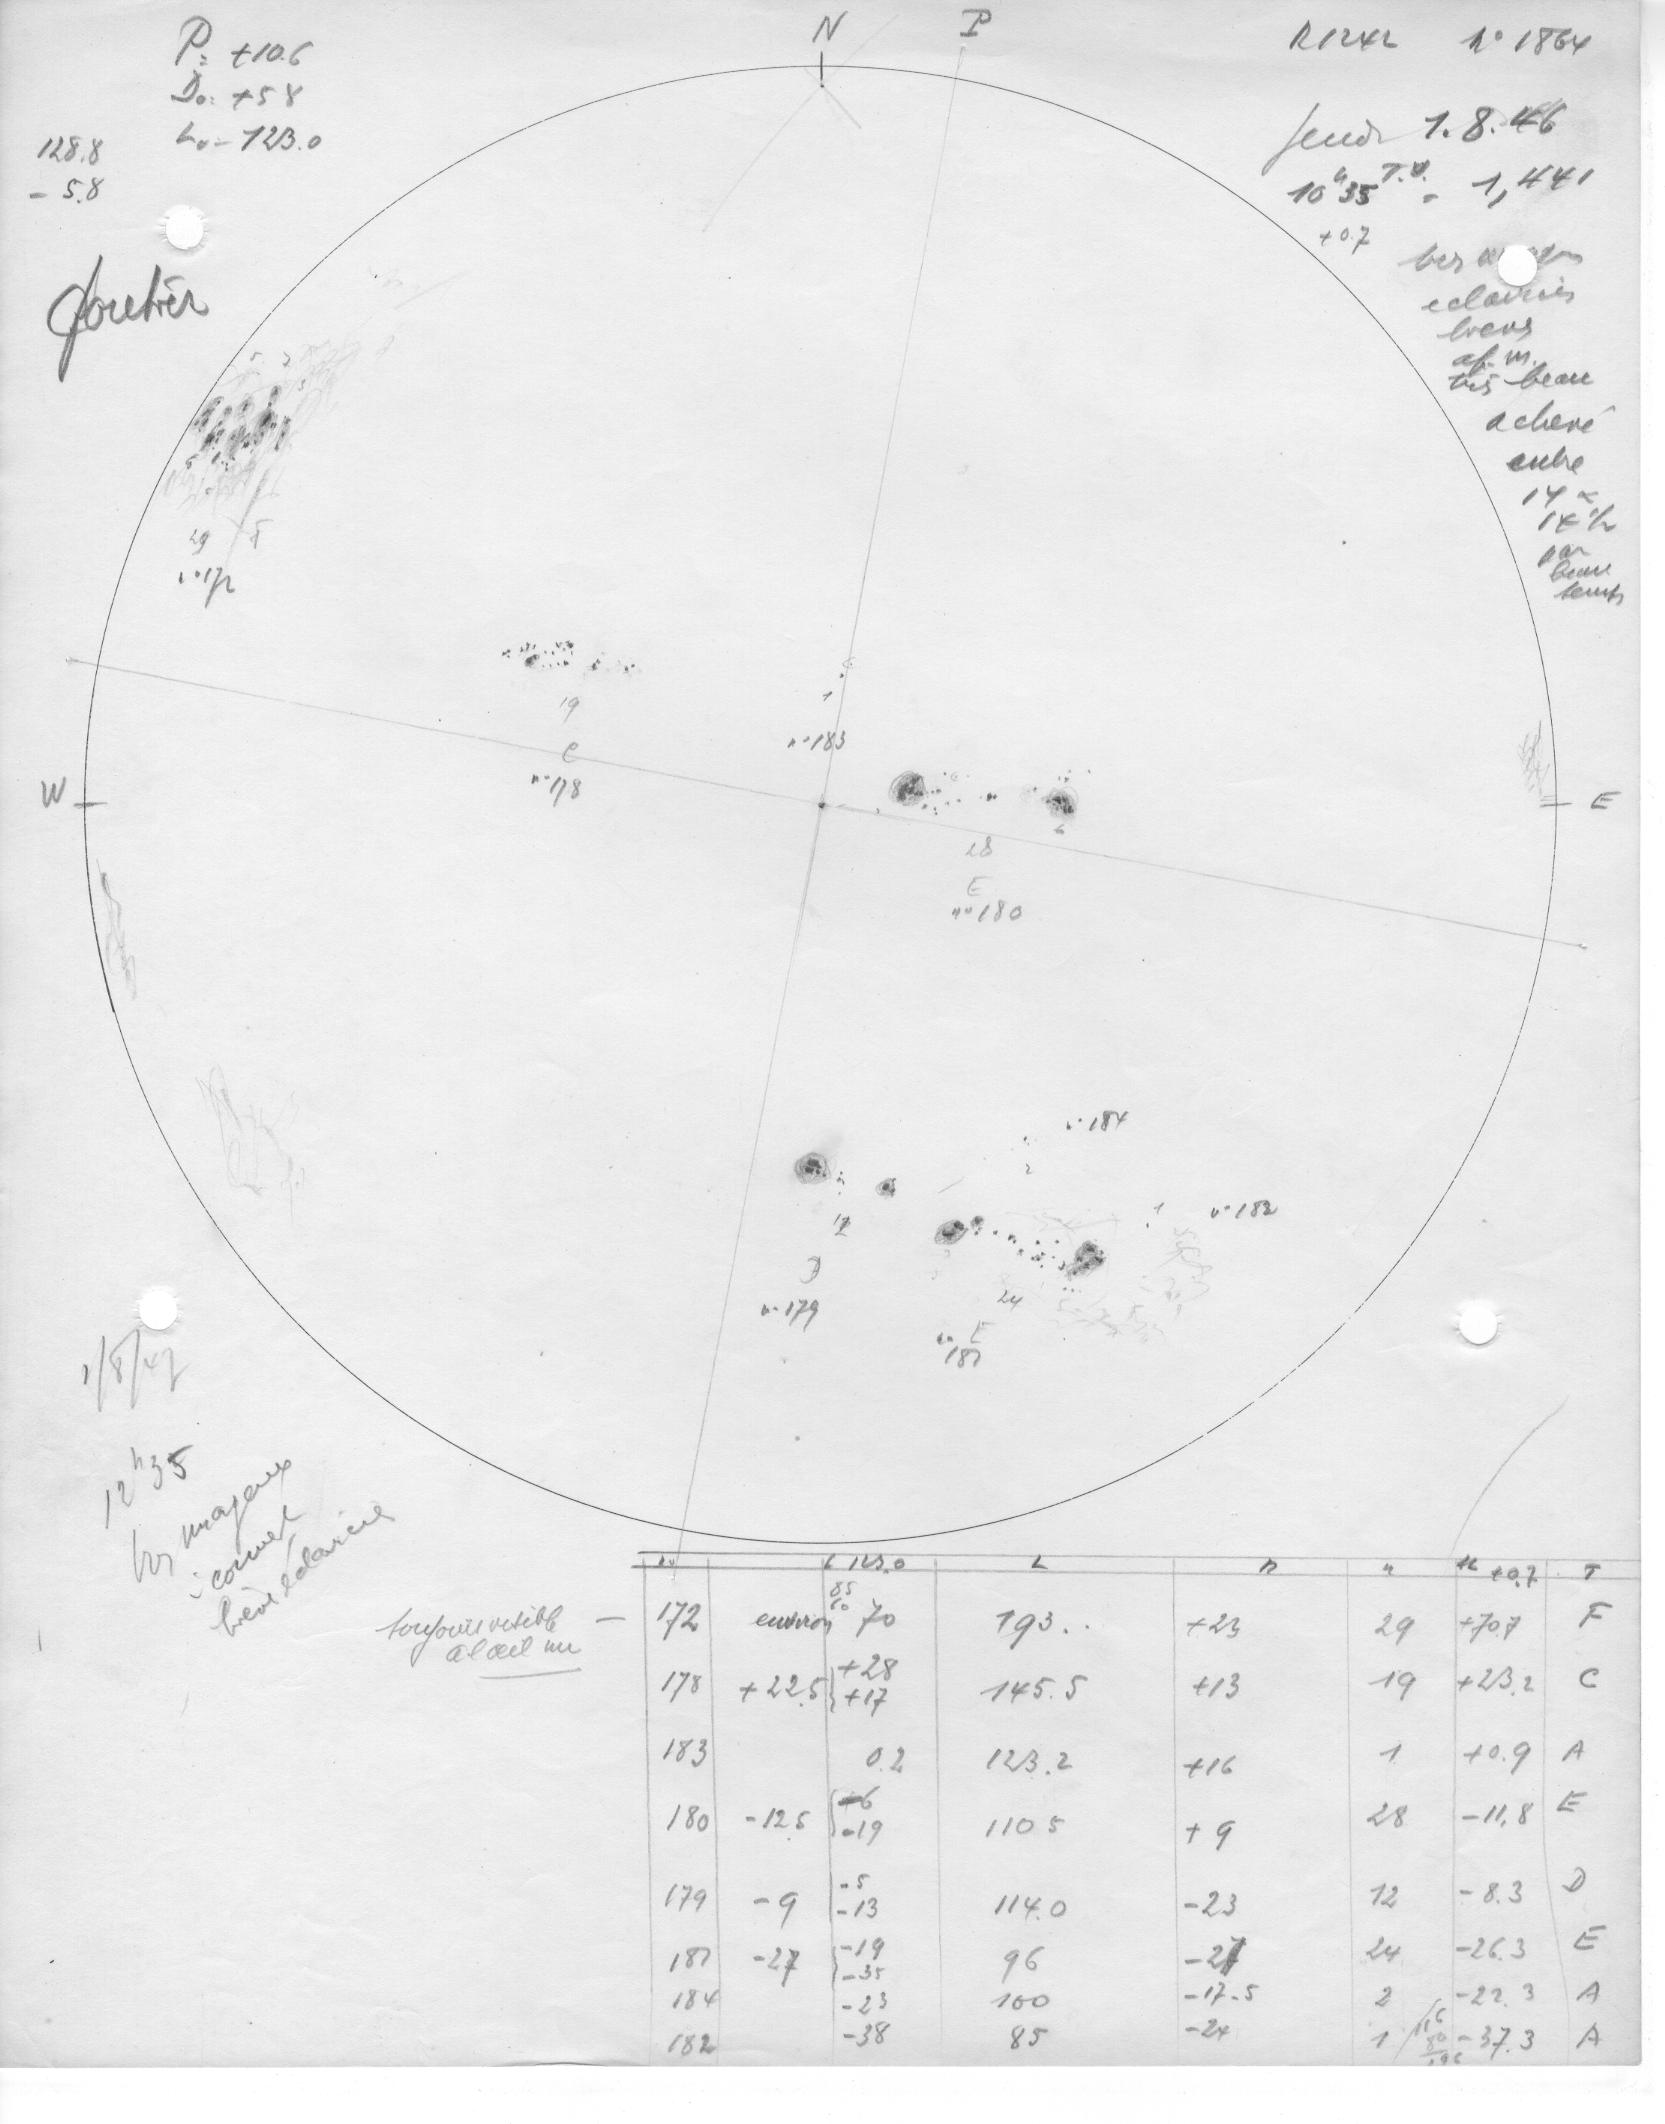 P = +10.6
D₀: +5.8
L₀ = 123.0
128.8
- 5.8
N
P
R1242 N° 1864
Jeudi 1.8.46
10ʰ35 T.U. = 1,441
+0.7
éclaircies
af. m.
très beau
achevé
entre
14 &
par
beau
temps
29 F
n°172
19
C
n°178
1
n°183
W
E
6
28
E
n°180
n°184
2
1
n°182
12
D
n°179
24
E
n°181
1/8/47
12ʰ35
très nuageux
brève éclaircie
123.0 L n +0.7 T
toujours visible
à l'œil nu
172 environ 70 193.. +23 29 +70.7 F
178 +22.5 +28 +17 145.5 +13 19 +23.2 C
183 0.2 123.2 +16 1 +0.9 A
180 -12.5 -6 -19 110.5 +9 28 -11.8 E
179 -9 -5 -13 114.0 -23 12 -8.3 D
181 -27 -19 -35 96 -27 24 -26.3 E
184 -23 100 -17.5 2 -22.3 A
182 -38 85 -24 1 -37.3 A